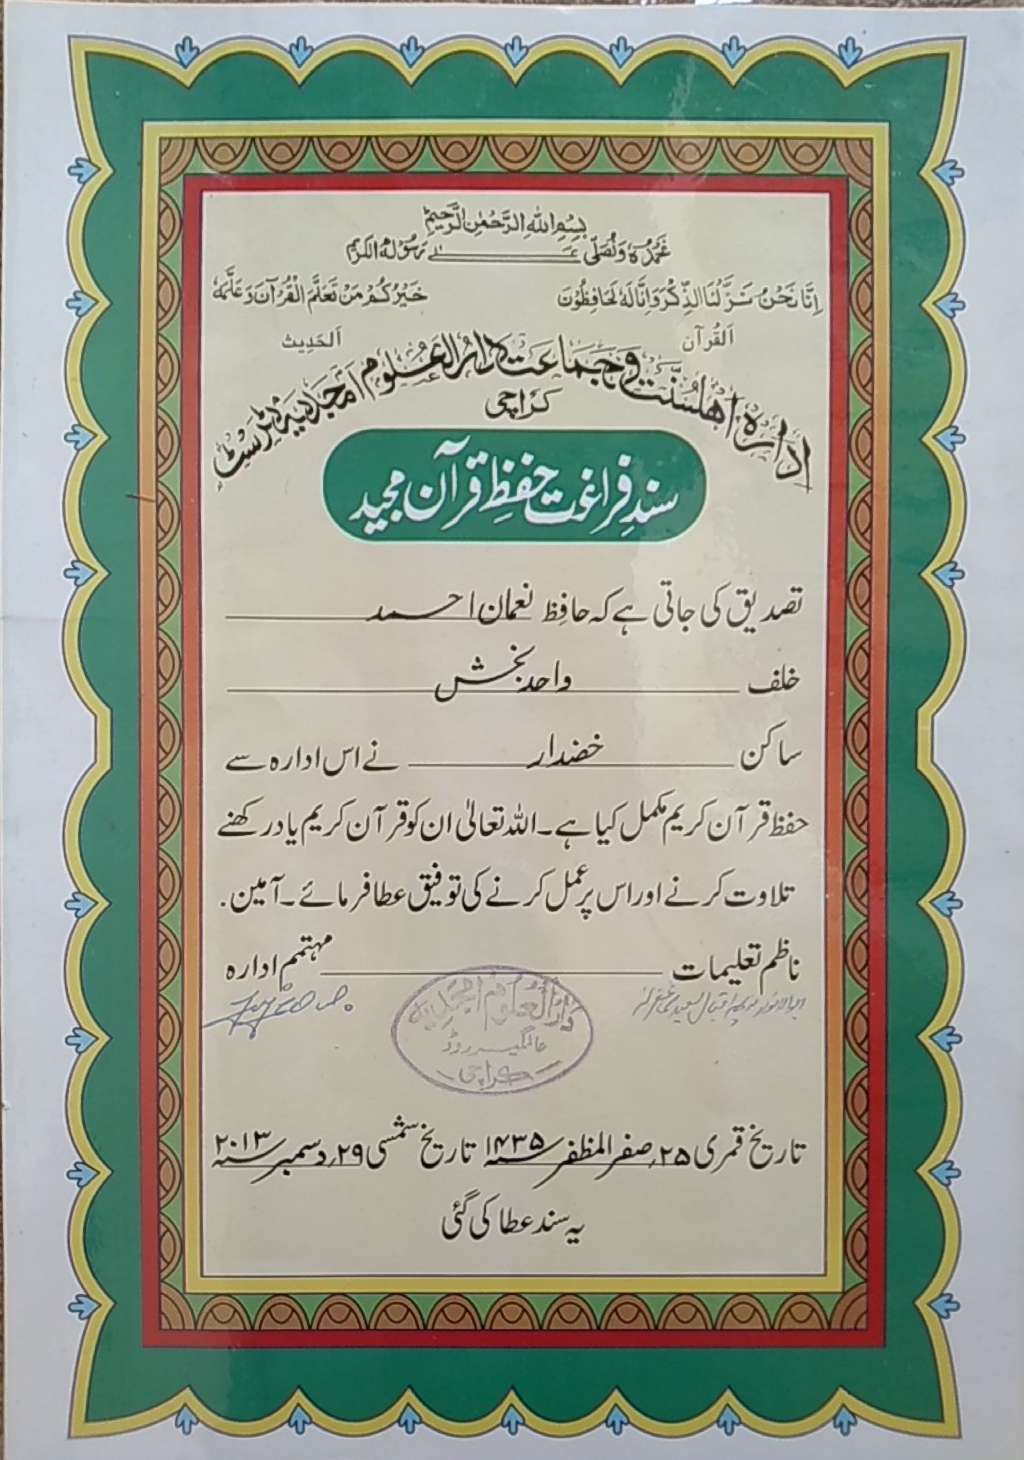 بِسْمِ اللهِ الرَّحْمٰنِ الرَّحِيْمِ
نَحْمَدُهٗ وَنُصَلِّیْ عَلٰی رَسُوْلِهِ الْكَرِيْمِ
اِنَّا نَحْنُ نَزَّلْنَا الذِّكْرَ وَاِنَّا لَهٗ لَحَافِظُوْنَ
اَلْقُرآن
خَيْرُكُمْ مَنْ تَعَلَّمَ الْقُرْآنَ وَعَلَّمَهٗ
اَلْحَدِیْث
ادارہ اہلسنّت و جماعت دارالعلوم امجدیہ ٹرسٹ
کراچی
سندِ فراغوت حفظِ قرآن مجید
تصدیق کی جاتی ہے کہ حافظ نعمان احمد
خلف واحد بخش
ساکن خضدار نے اس ادارہ سے
حفظ قرآن کریم مکمل کیا ہے۔ اللہ تعالیٰ ان کو قرآن کریم یاد رکھنے
تلاوت کرنے اور اس پر عمل کرنے کی توفیق عطا فرمائے۔ آمین.
ناظم تعلیمات مہتمم ادارہ
دارالعلوم امجدیہ
عالمگیر روڈ
کراچی
تاریخ قمری ۲۵؍ صفر المظفر ۱۴۳۵ تاریخ شمسی ۲۹؍ دسمبر ۲۰۱۳
یہ سند عطا کی گئی